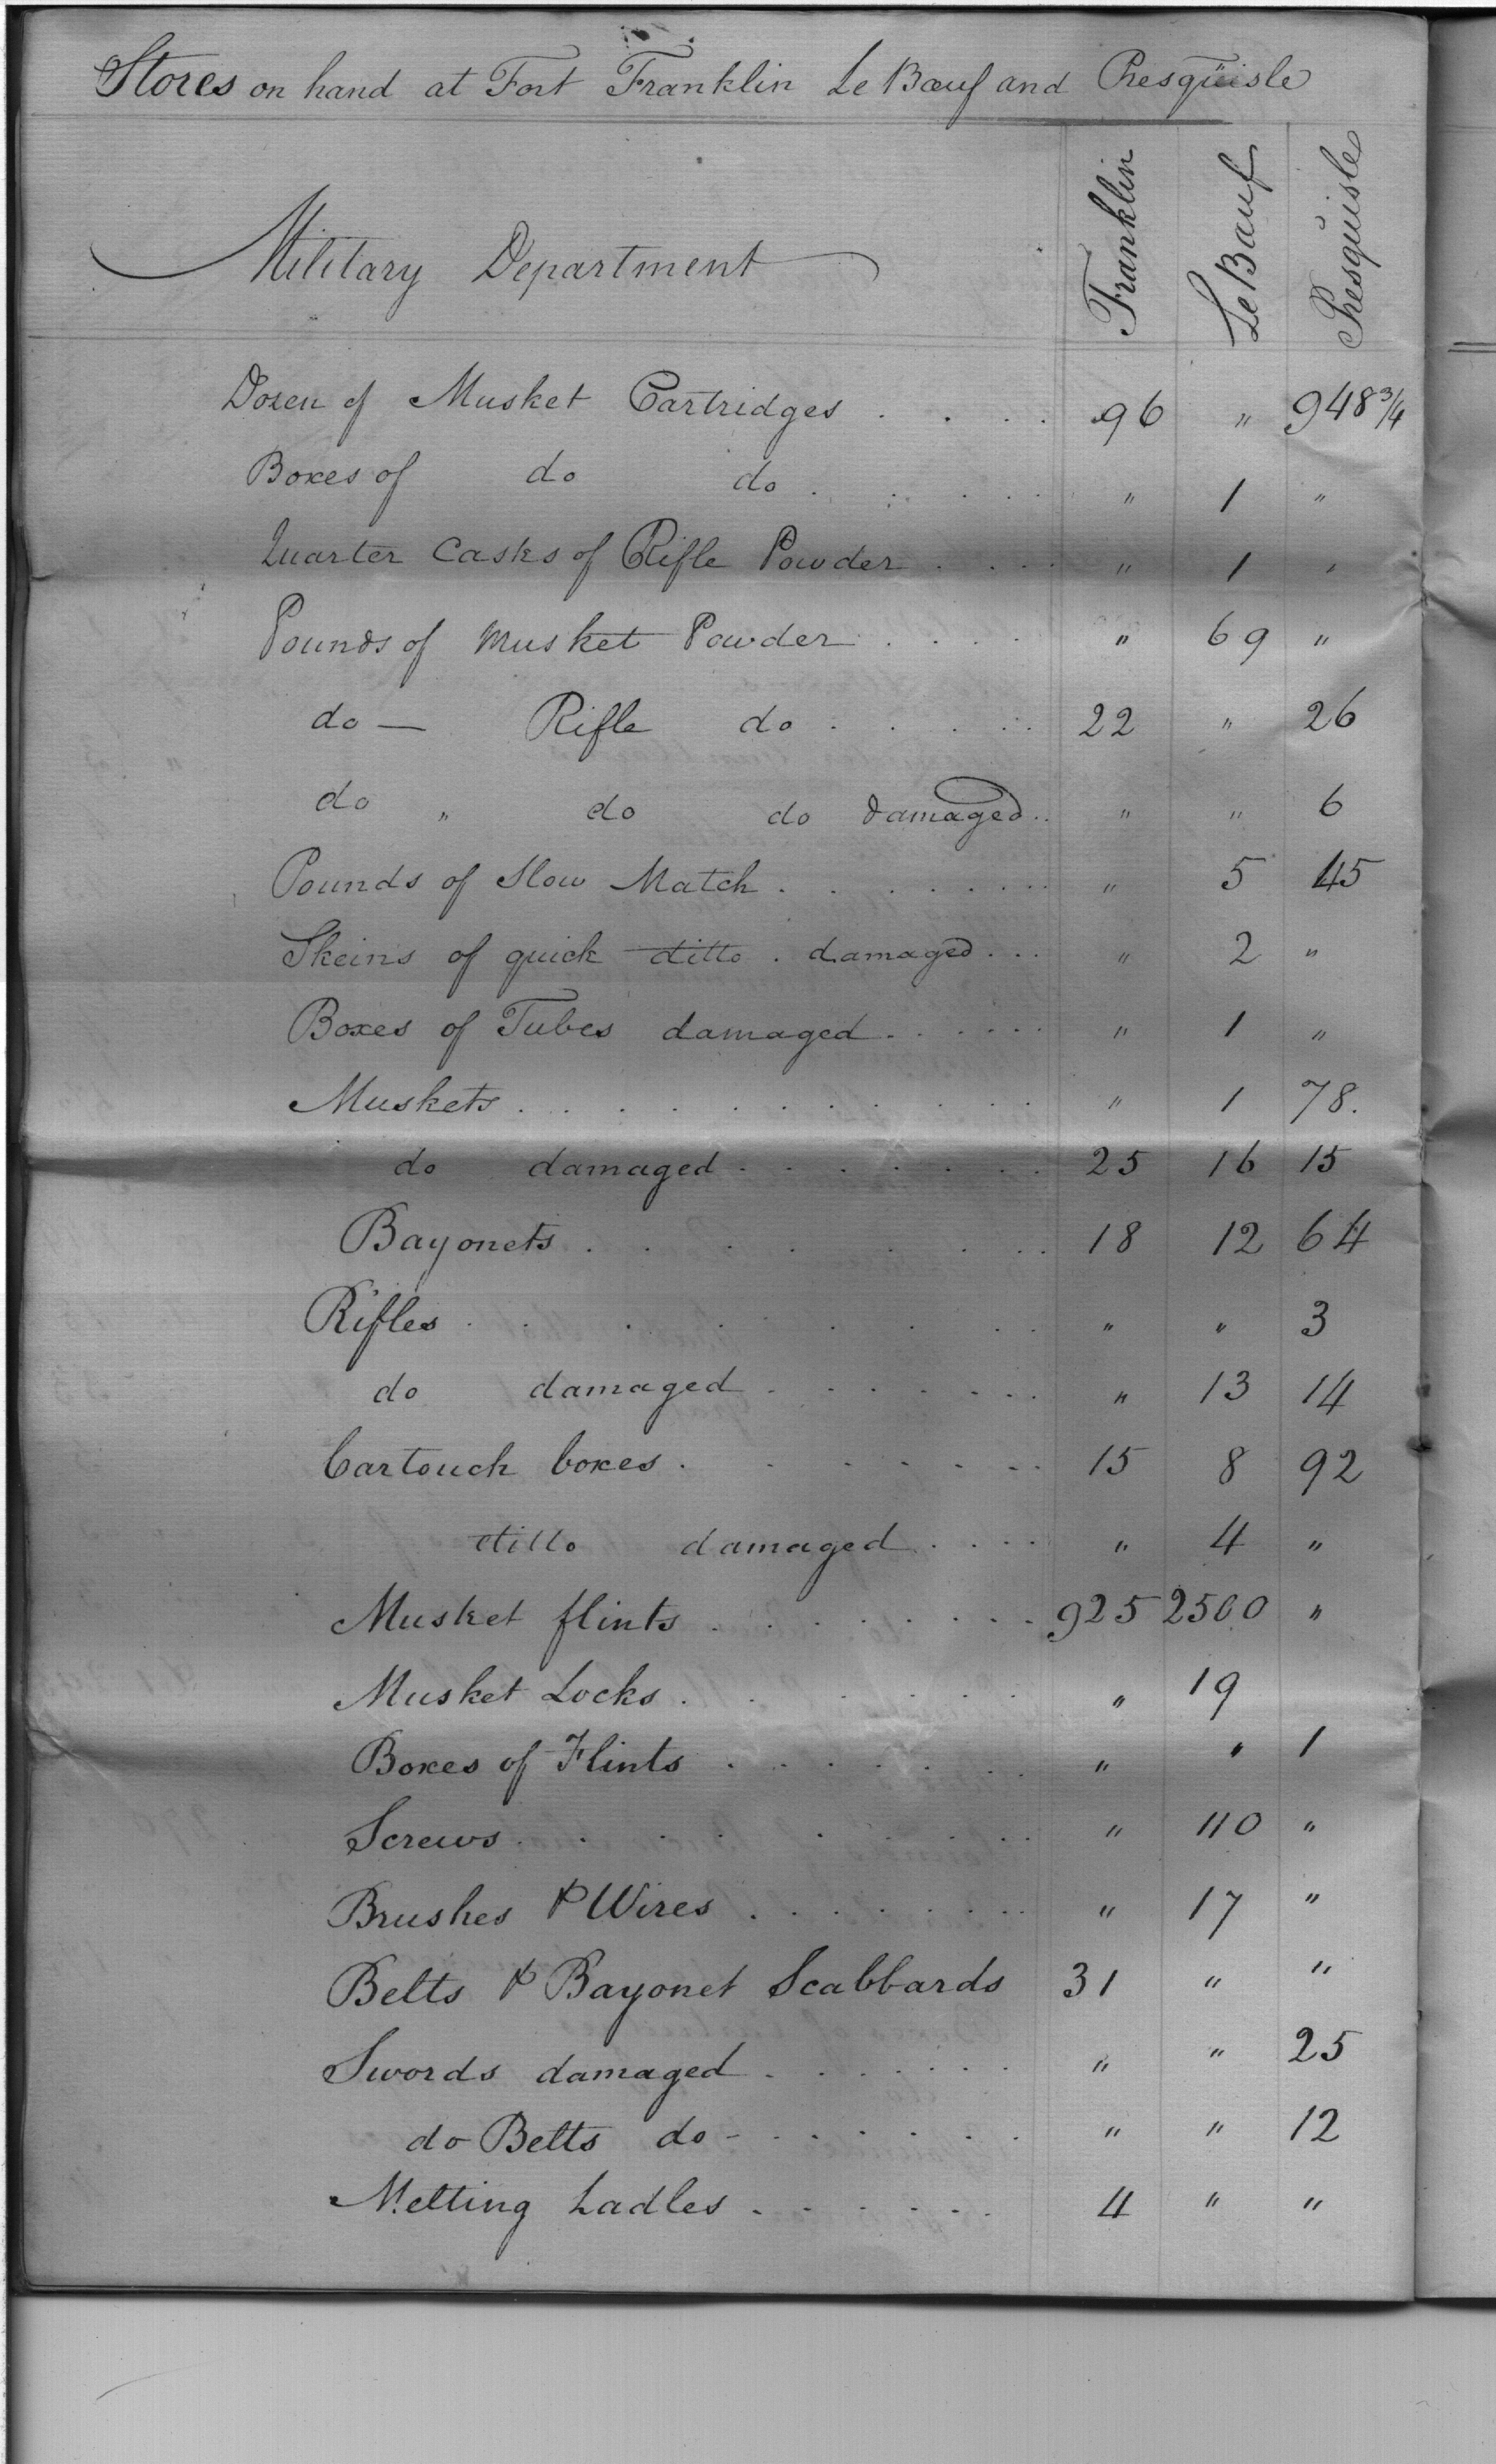 Stores on hand at Fort Franklin Le Bœuf and Presqüisle
Military Department
Franklin
Le Bœuf
Presqüisle
Dozen of Musket Cartridges . . . . 96 " 948 3/4
Boxes of do do . . . . . " 1 "
Quarter Casks of Rifle Powder . . . " 1 "
Pounds of Musket Powder . . . . " 69 "
do — Rifle do . . . . . 22 " 26
do " do do damaged . . " " 6
Pounds of Slow Match . . . . . . . " 5 45
Skeins of quick ditto . damaged . . . " 2 "
Boxes of Tubes damaged . . . . . . " 1 "
Muskets . . . . . . . . . . " 1 78.
do damaged . . . . . . . 25 16 15
Bayonets . . . . . . . . 18 12 64
Rifles . . . . . . . . . " " 3
do damaged . . . . . . . " 13 14
Cartouch boxes . . . . . . . 15 8 92
ditto damaged . . . . " 4 "
Musket flints . . . . . . . 925 2500 "
Musket Locks . . . . . . . " 19
Boxes of Flints . . . . . . . " " 1
Screws . . . . . . . . . " 110 "
Brushes & Wires . . . . . . . " 17 "
Belts & Bayonet Scabbards 31 " "
Swords damaged . . . . . . " " 25
do Belts do - . . . . . . " " 12
Melting Ladles . . . . . . 4 " "